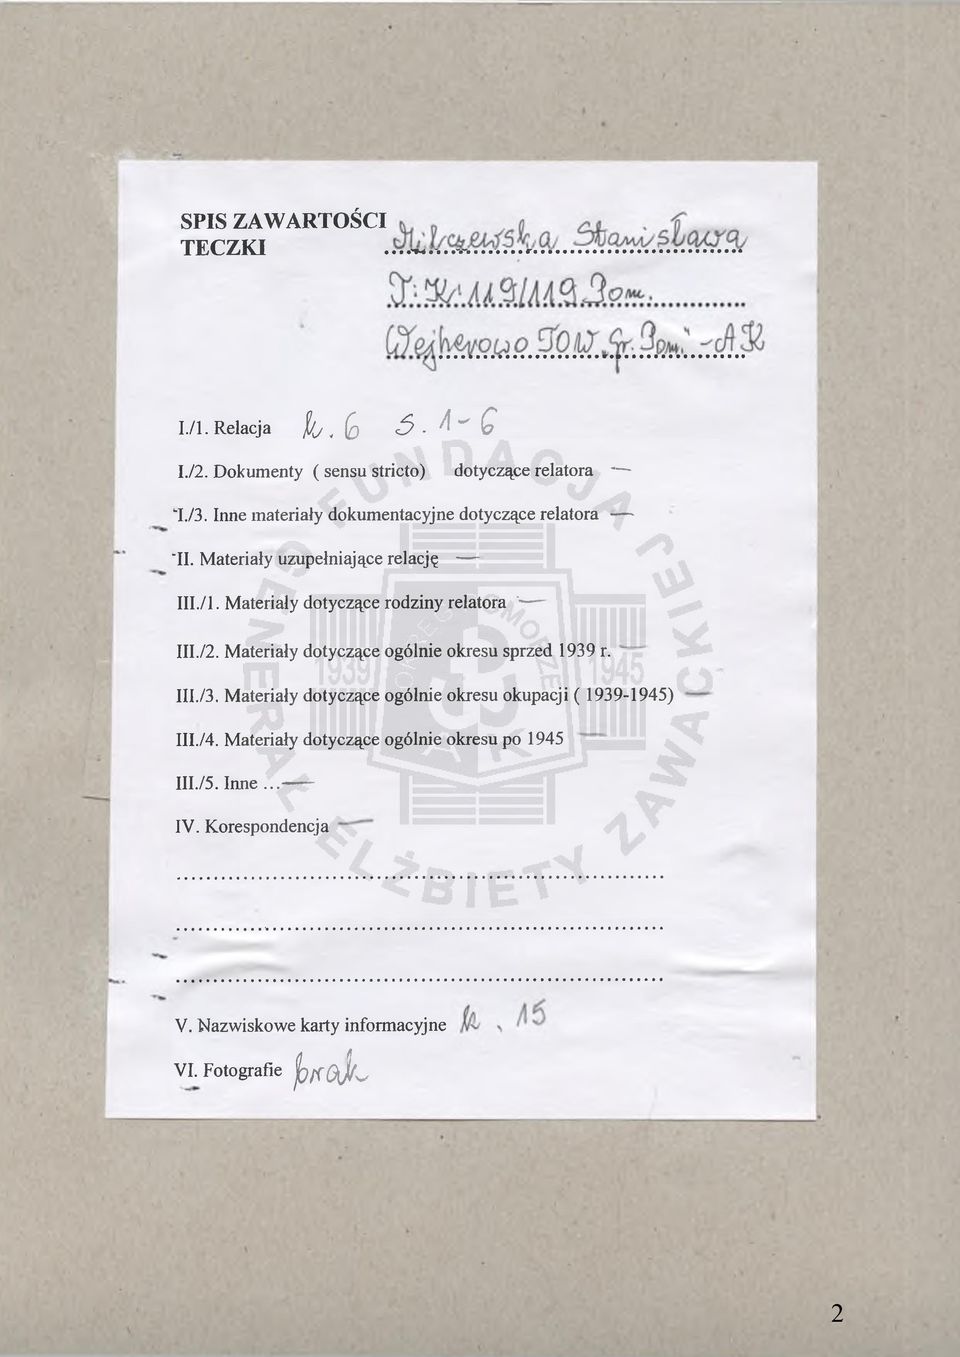 SPIS ZAWARTOŚCI
TECZKI Milczewska Stanisława
T: K: 119/119 Pom.
Wejherowo TOW „Gr. Pom." - AK
I./1. Relacja k. 6 s. 1-6
I./2. Dokumenty ( sensu stricto) dotyczące relatora —
I./3. Inne materiały dokumentacyjne dotyczące relatora —
II. Materiały uzupełniające relację —
III./1. Materiały dotyczące rodziny relatora —
III./2. Materiały dotyczące ogólnie okresu sprzed 1939 r. —
III./3. Materiały dotyczące ogólnie okresu okupacji ( 1939-1945) —
III./4. Materiały dotyczące ogólnie okresu po 1945 —
III./5. Inne ... —
IV. Korespondencja —
V. Nazwiskowe karty informacyjne k. 15
VI. Fotografie brak
FUNDACJA GENERAŁ ELŻBIETY ZAWACKIEJ
1939 1945
AK
2